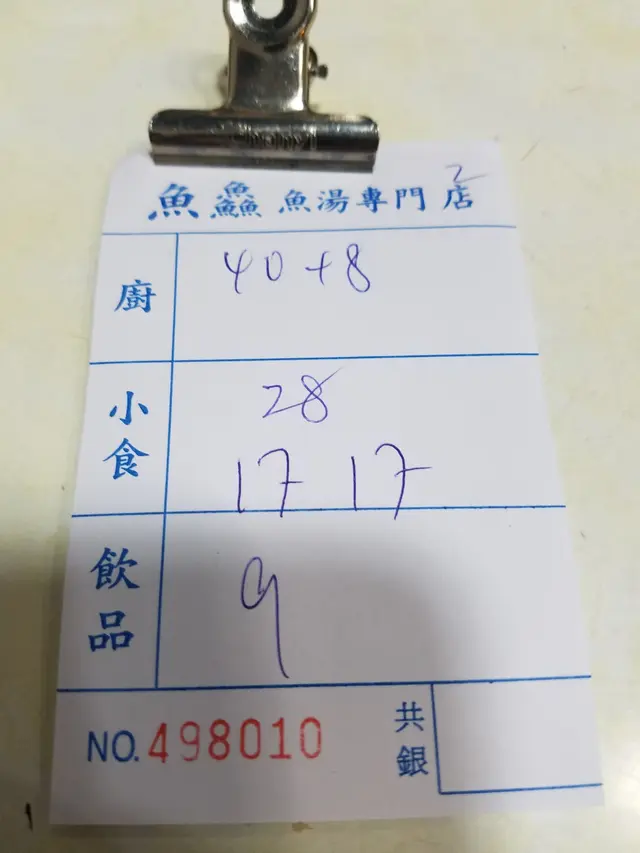 2
魚鱻魚湯專門店
廚 40+8
小食 28
17 17
飲品 9
NO.498010 共銀